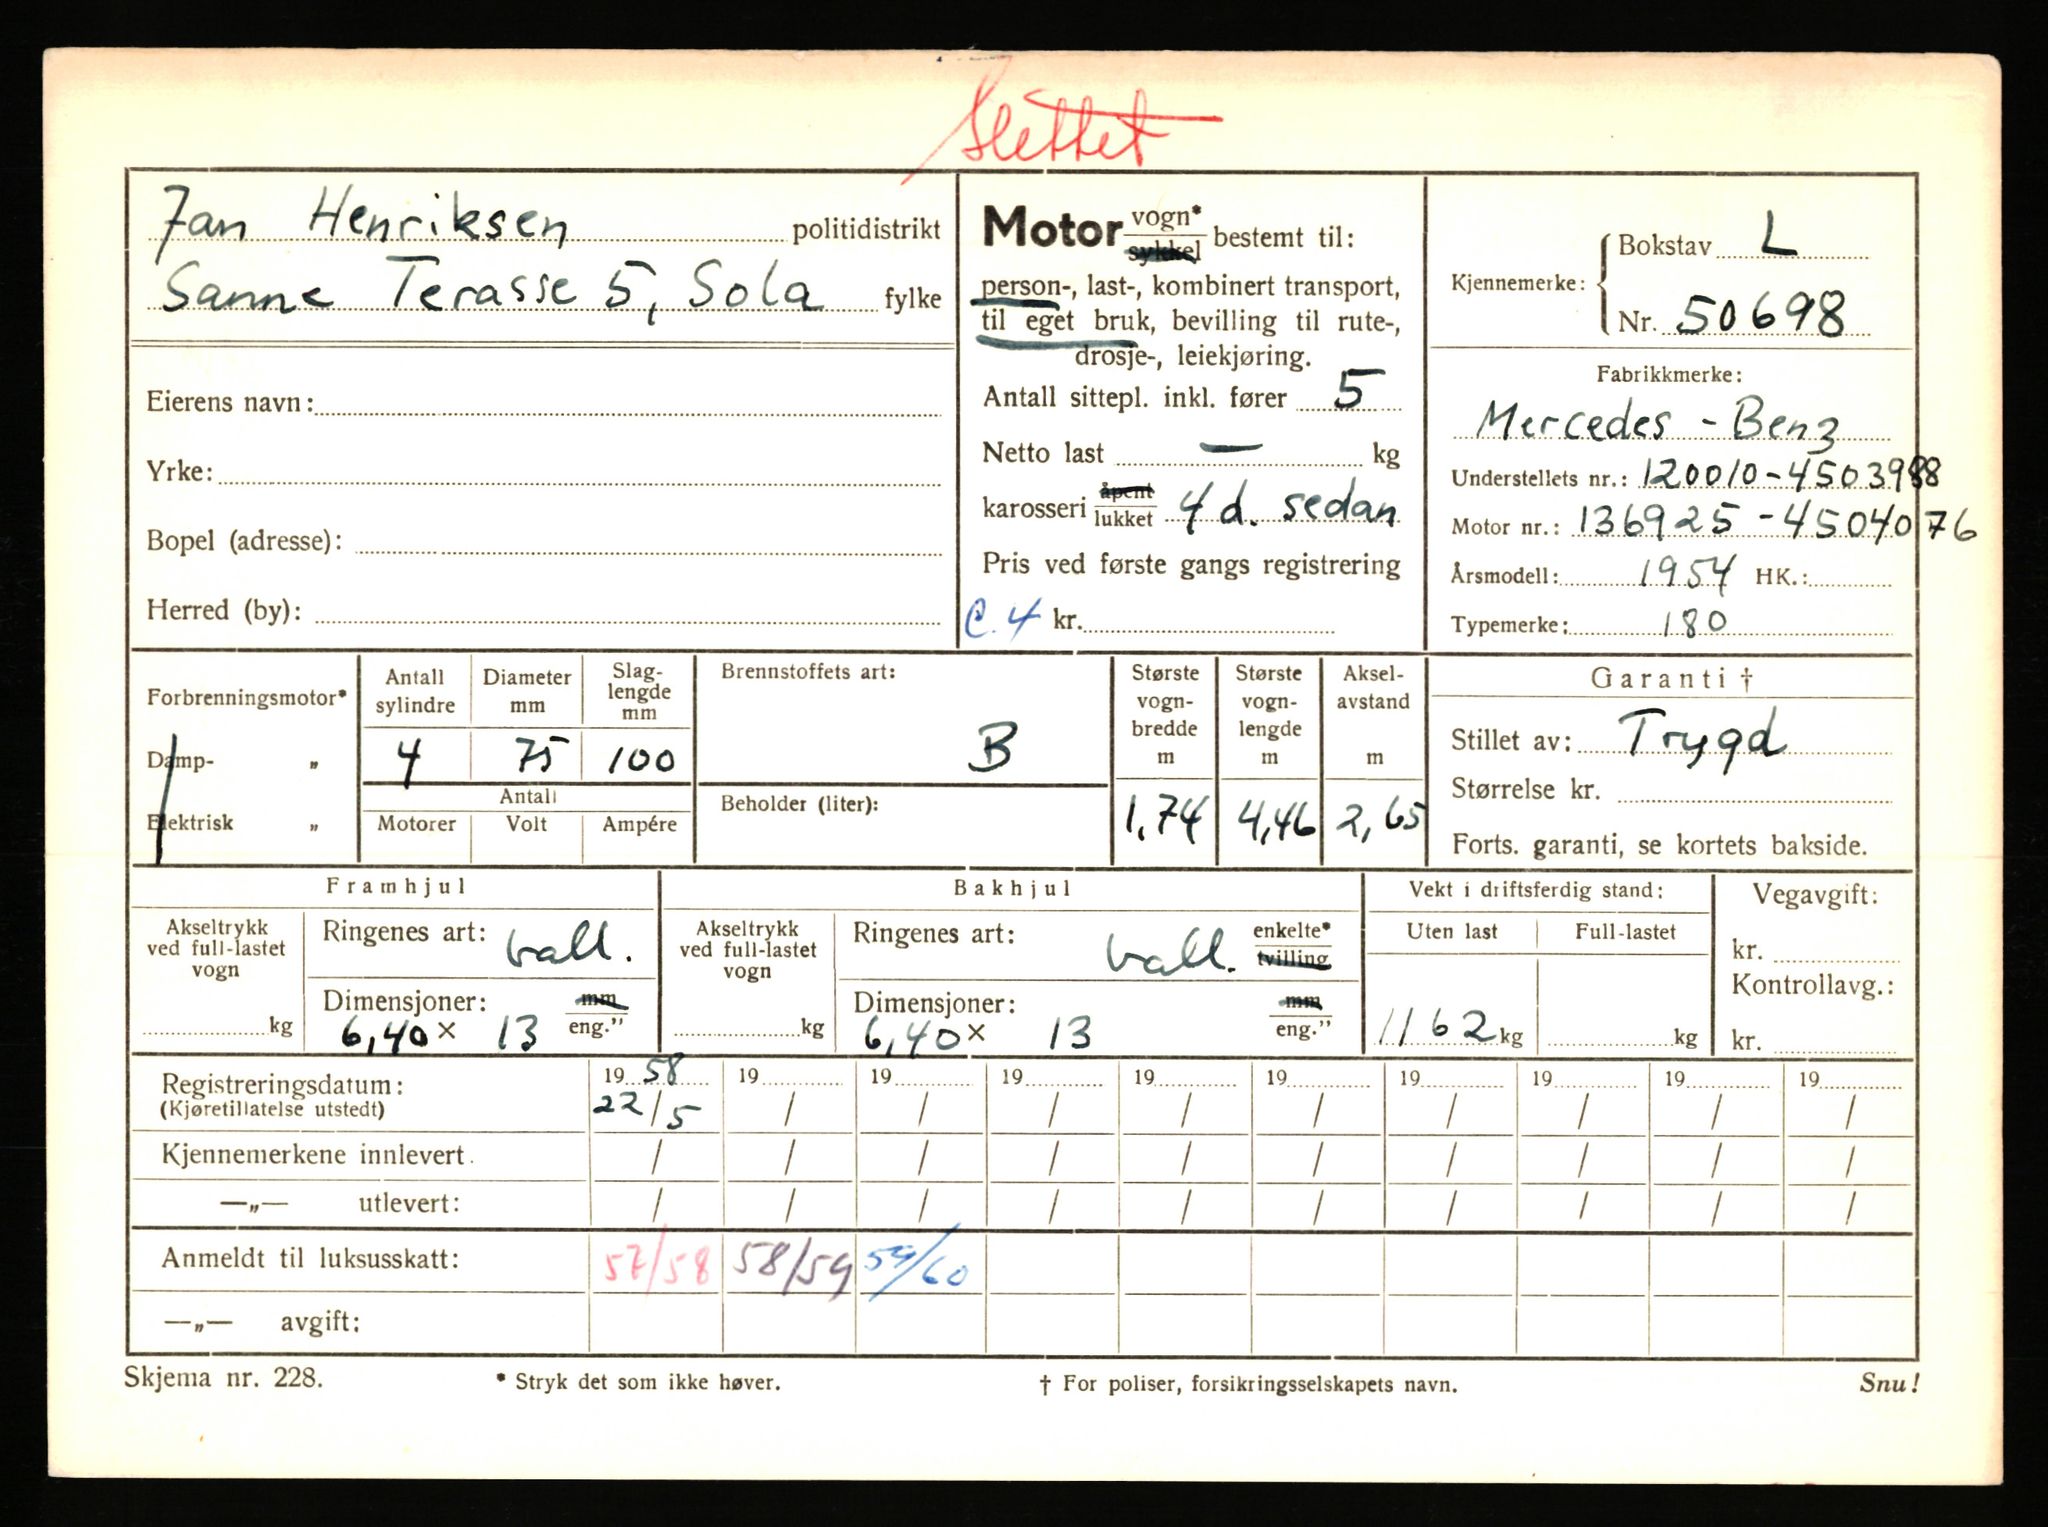 Slettet
Jan Henriksen politidistrikt
Sanne Terasse 5, Sola fylke
Eierens navn:
Yrke:
Bopel (adresse):
Herred (by):
Motor vogn* sykkel bestemt til:
person-, last-, kombinert transport,
til eget bruk, bevilling til rute-,
drosje-, leiekjøring.
Antall sittepl. inkl. fører 5
Netto last — kg
karosseri åpent lukket 4 d. sedan
Pris ved første gangs registrering
C. 4 kr.
Kjennemerke: Bokstav L
Nr. 50698
Fabrikkmerke:
Mercedes - Benz
Understellets nr.: 120010-4503988
Motor nr.: 136925-4504076
Årsmodell: 1954 HK.:
Typemerke: 180
Forbrenningsmotor*
Damp- „
Elektrisk „
Antall sylindre
Diameter mm
Slag-lengde mm
4 75 100
Antall
Motorer Volt Ampére
Brennstoffets art:
B
Beholder (liter):
Største vogn-bredde m
Største vogn-lengde m
Aksel-avstand m
1,74 4,46 2,65
Garanti †
Stillet av: Trygd
Størrelse kr.
Forts. garanti, se kortets bakside.
Framhjul
Akseltrykk ved full-lastet vogn
kg
Ringenes art: ball.
Dimensjoner: mm eng.”
6,40 × 13
Bakhjul
Akseltrykk ved full-lastet vogn
kg
Ringenes art: ball. enkelte* tvilling
Dimensjoner: mm eng.”
6,40 × 13
Vekt i driftsferdig stand:
Uten last Full-lastet
1162 kg kg
Vegavgift:
kr.
Kontrollavg.:
kr.
Registreringsdatum: 19 58 19 19 19 19 19 19 19 19 19
(Kjøretillatelse utstedt) 22/5 / / / / / / / / /
Kjennemerkene innlevert. / / / / / / / / / /
—„— utlevert: / / / / / / / / / /
Anmeldt til luksusskatt: 57/58 58/59 59/60
—„— avgift:
Skjema nr. 228. * Stryk det som ikke høver. † For poliser, forsikringsselskapets navn. Snu!